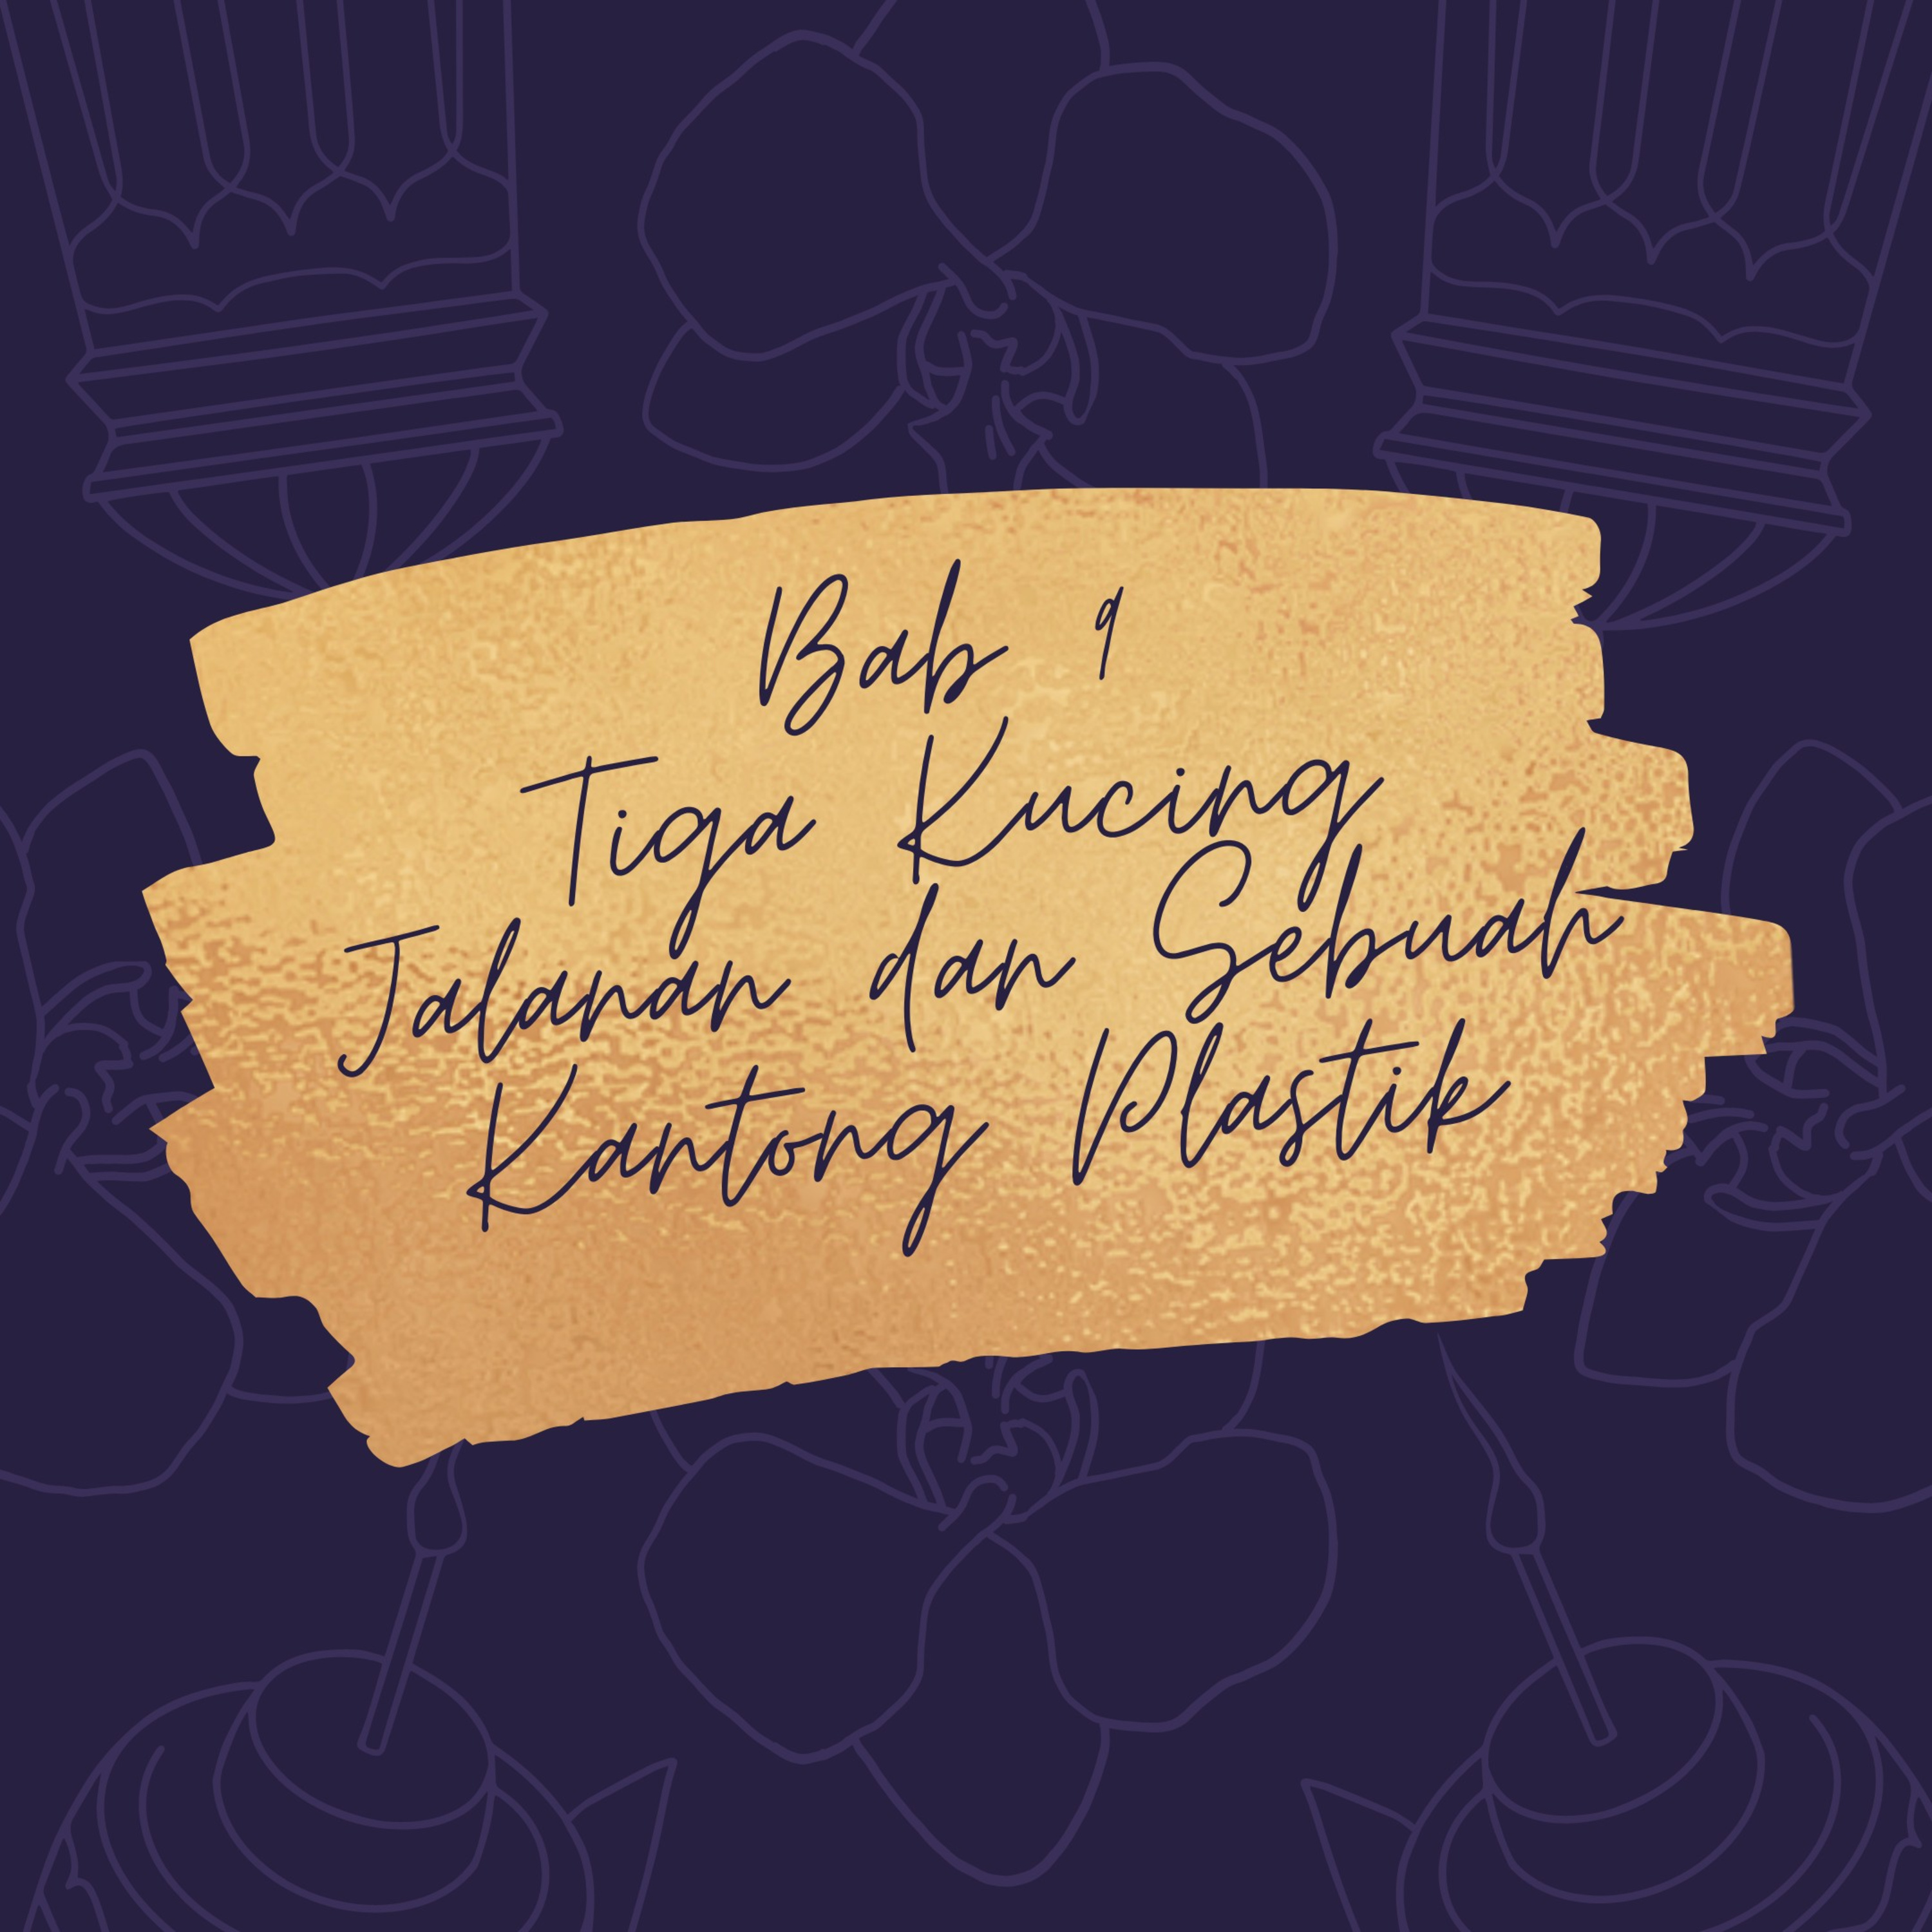 Bab 9
Tiga Kucing
Jalanan dan Sebuah
Kantong Plastik